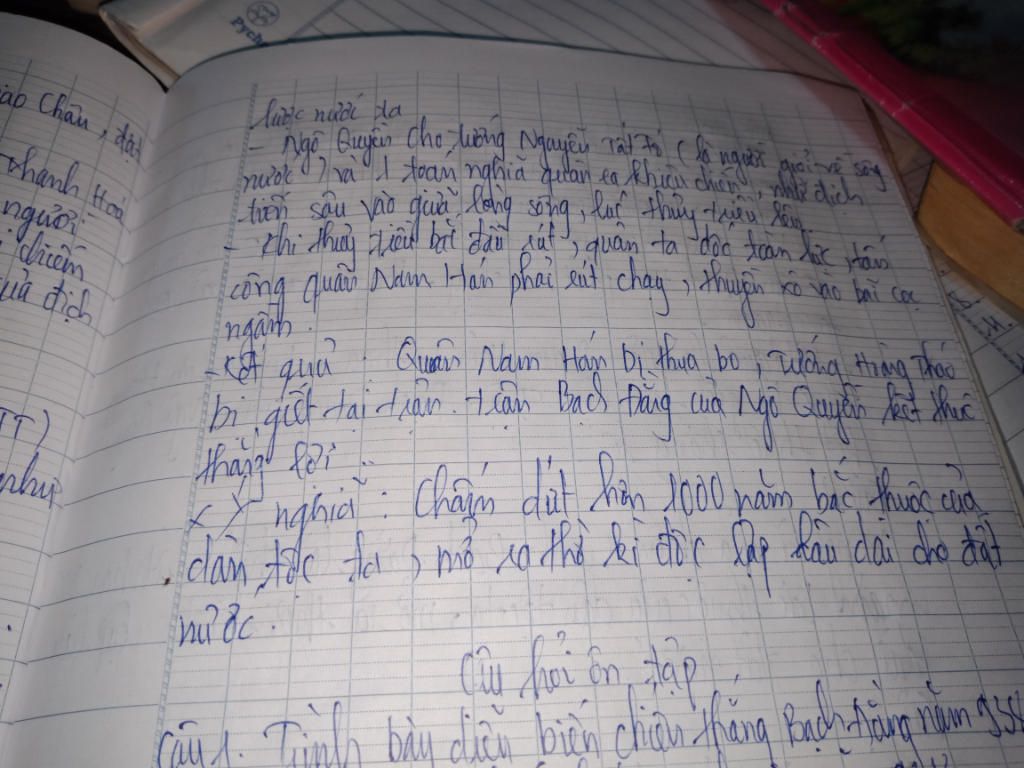 lược nước ta
- Ngô Quyền cho tướng Nguyễn Tất Tố (là người giỏi về sông
nước) và 1 toán nghĩa quân ra khiêu chiến, nhử địch
tiến sâu vào giữa lòng sông, lúc thủy triều lên
- Khi thuỷ triều bắt đầu rút, quân ta dốc toàn lực, tấn
công quân Nam Hán phải rút chạy, thuyền xô vào bãi cọc
ngầm.
- Kết quả : Quân Nam Hán bị thua to, tướng Hoằng Tháo
bị giết tại trận. trận Bạch Đằng của Ngô Quyền kết thúc
thắng lợi
Ý nghĩa : Chấm dứt hơn 1000 năm bắc thuộc của
dân tộc ta, mở ra thờ kì độc lập lâu dài cho đất
nước.
Câu hỏi ôn tập
Câu 1. Trình bày diễn biến chiến thắng Bạch Đằng năm 938
ào Châu, đạt
Thanh Hoá
người
chiếm
quả địch
TT)
như